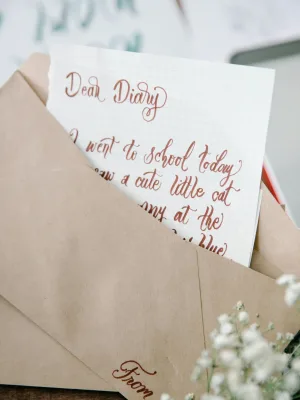 Dear Diary
I went to school today
saw a cute little cat
at the
blue
From